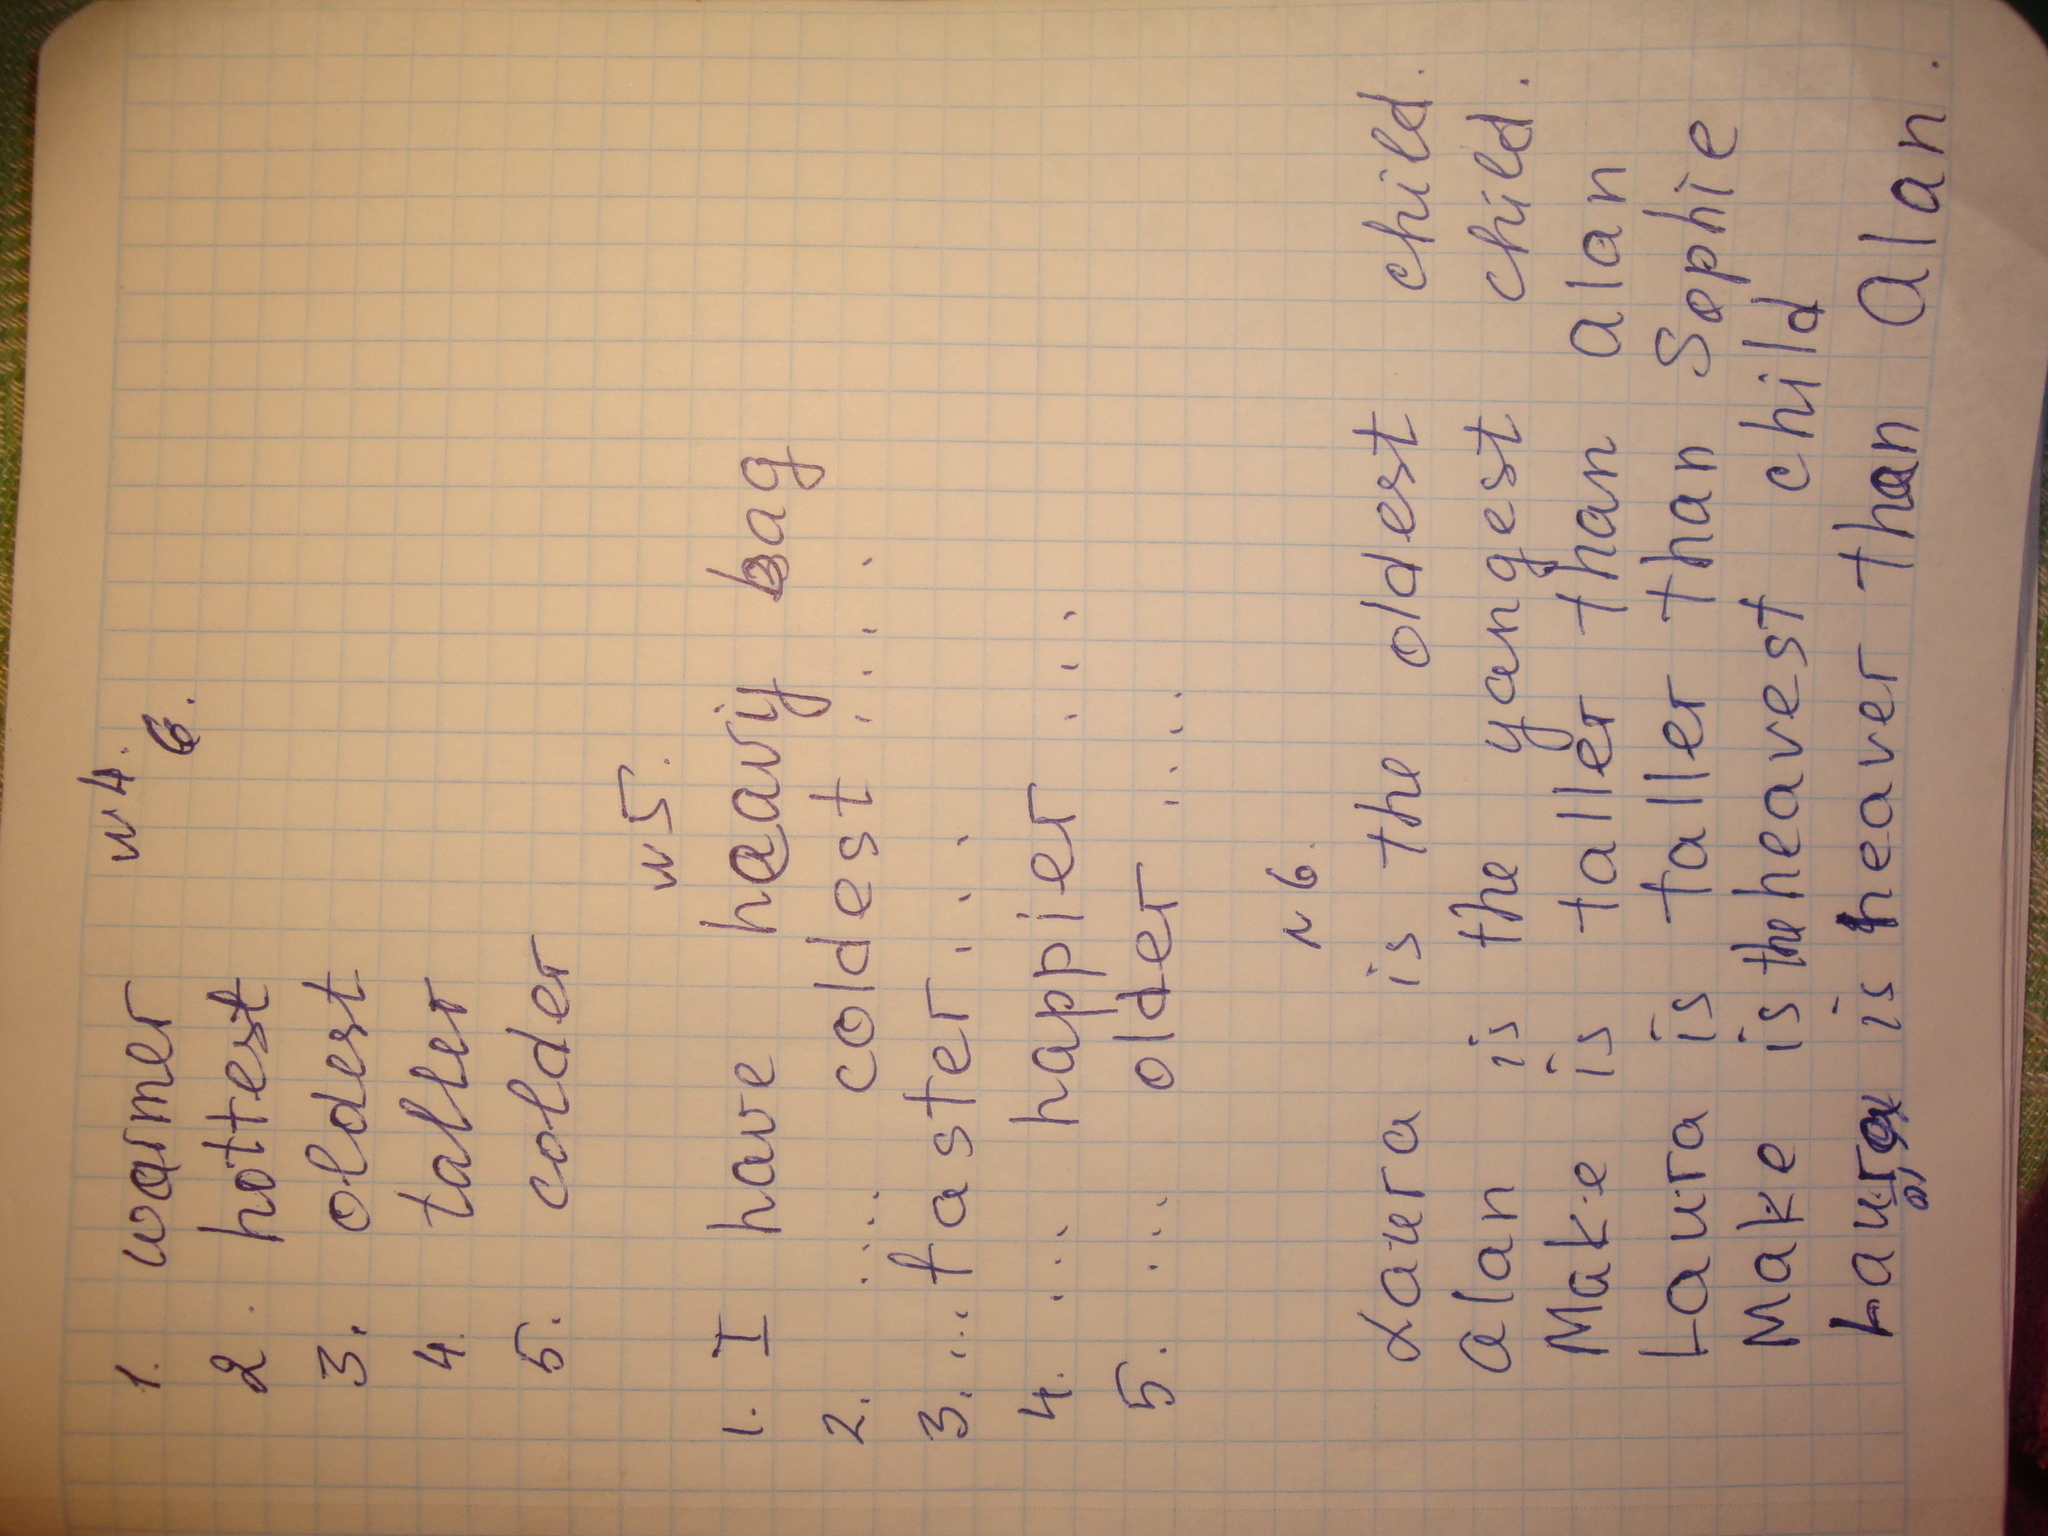 N4.
6.
1. warmer
2. hottest
3. oldest
4. taller
5. colder
N5.
1. I have heaviy bag
2. .... coldest ....
3. ... faster ....
4. ... happier ....
5. .... older ....
N6.
Laura is the oldest child.
alan is the yangest child.
Make is taller than alan
Laura is taller than Sophie
Make is the heavest child
Laura is heaver than Alan.